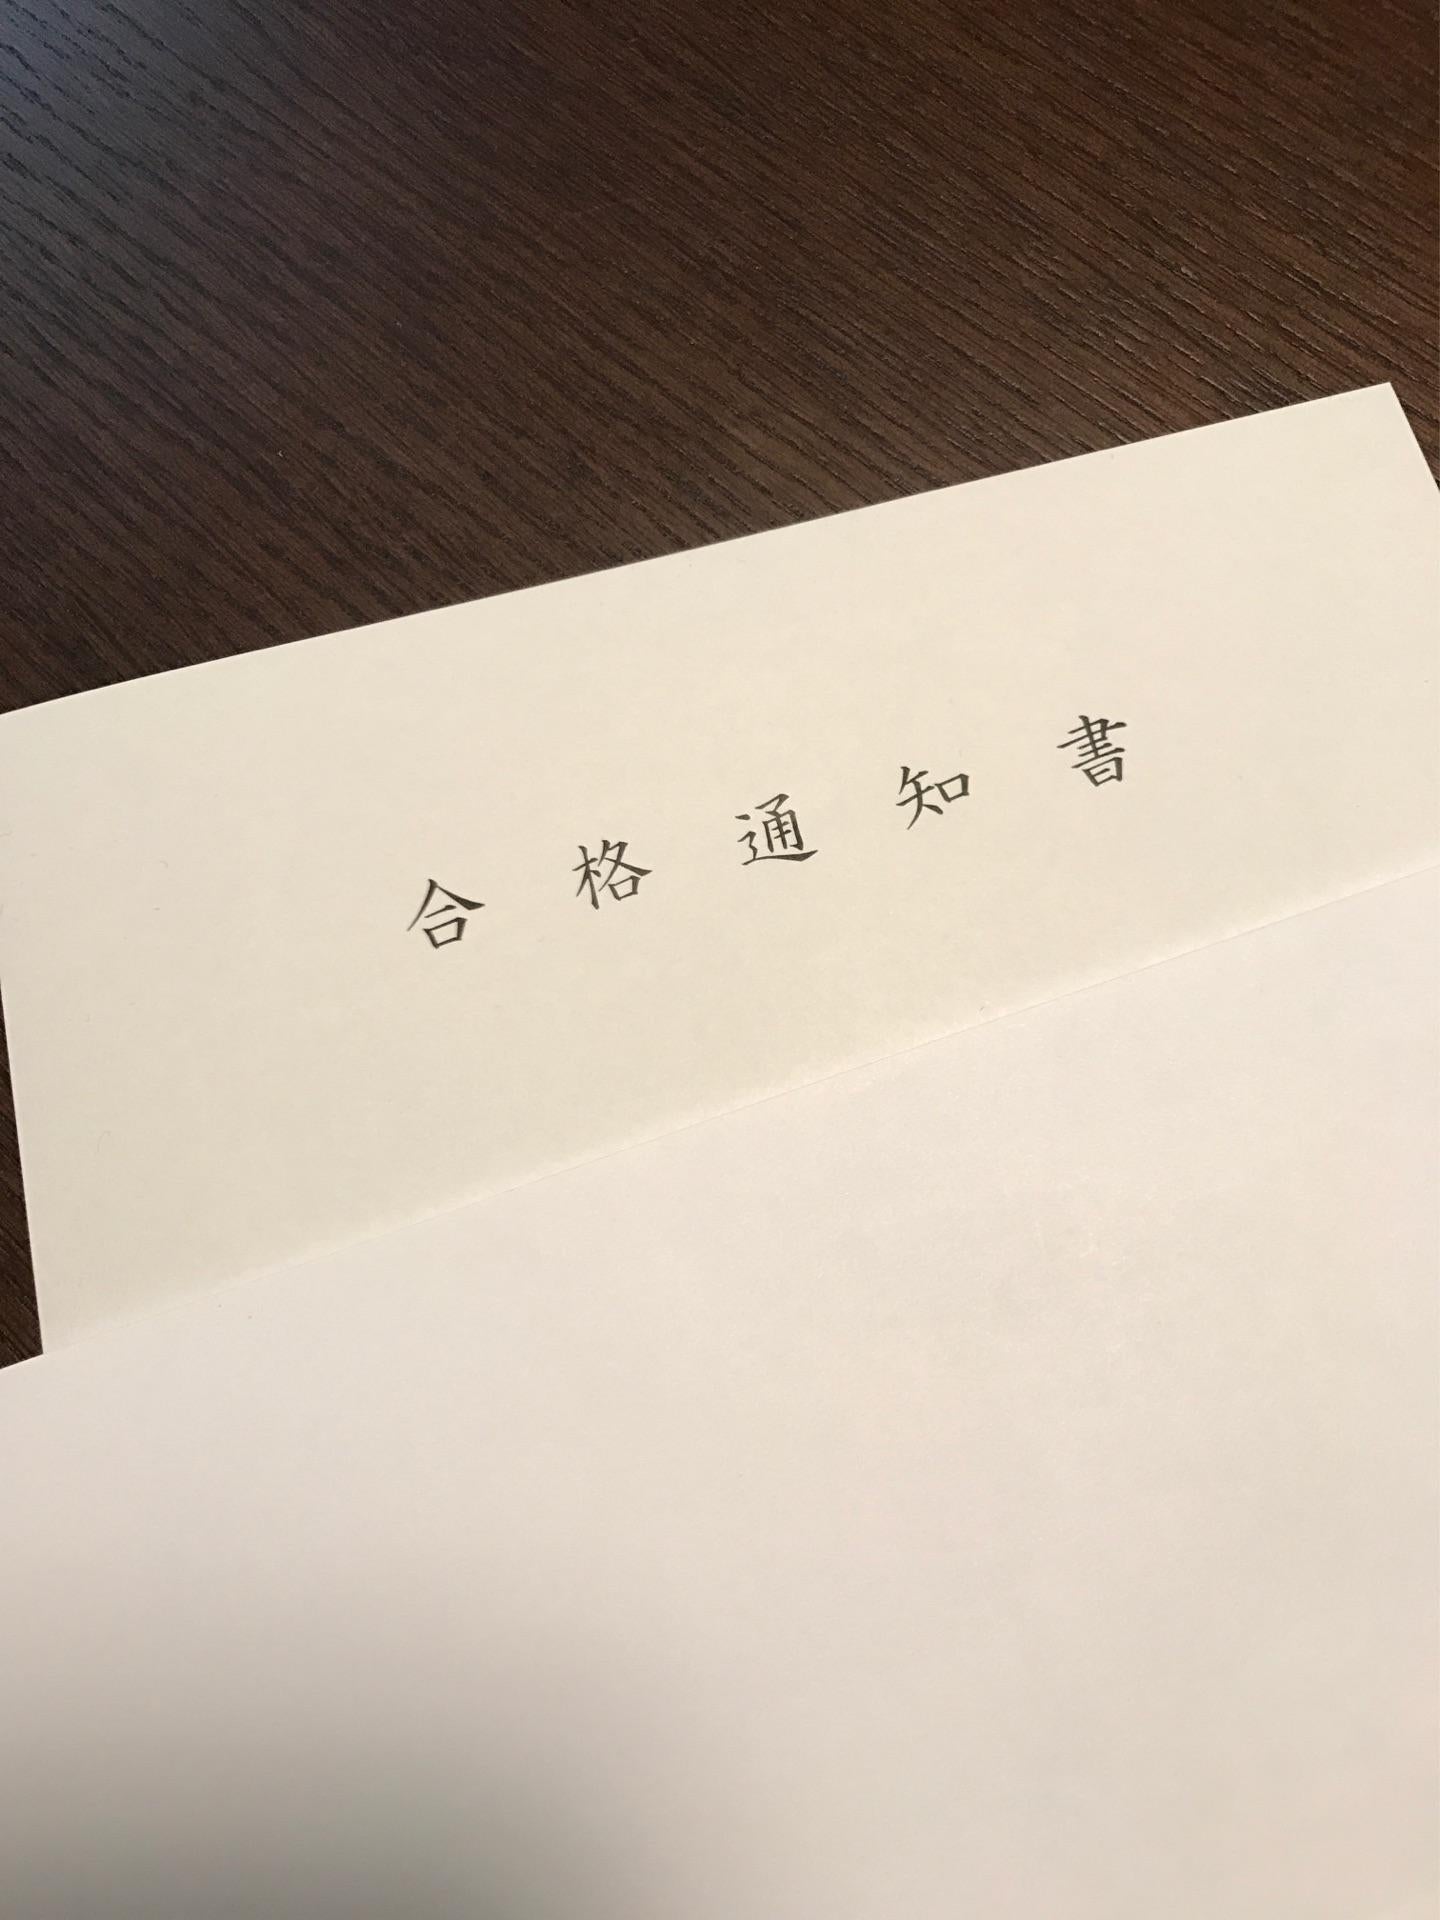 合格通知書